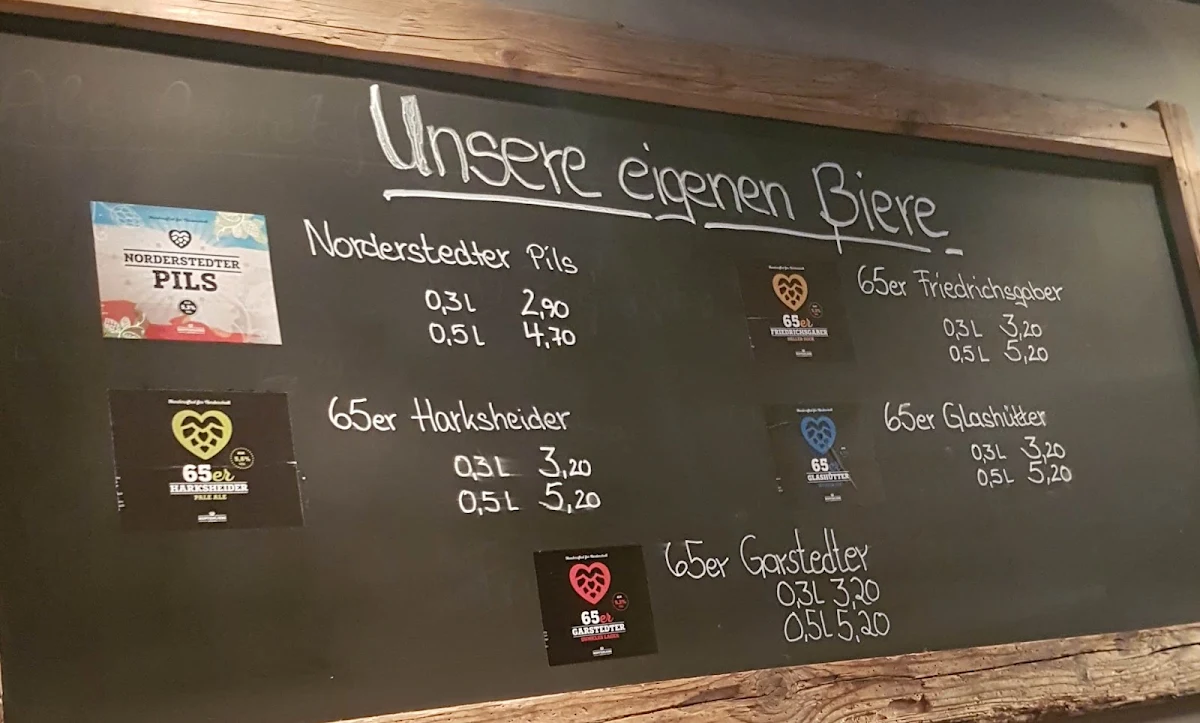 Unsere eigenen Biere
NORDERSTEDTER
PILS
Norderstedter Pils
0,3L 2,90
0,5L 4,70
65er
HARKSHEIDER
PALE ALE
65er Harksheider
0,3L 3,20
0,5L 5,20
65er
FRIEDRICHSGABER
65er Friedrichsgaber
0,3L 3,20
0,5L 5,20
65er
GLASHÜTTER
65er Glashütter
0,3L 3,20
0,5L 5,20
65er
GARSTEDTER
DUNKLES LAGER
65er Garstedter
0,3L 3,20
0,5L 5,20